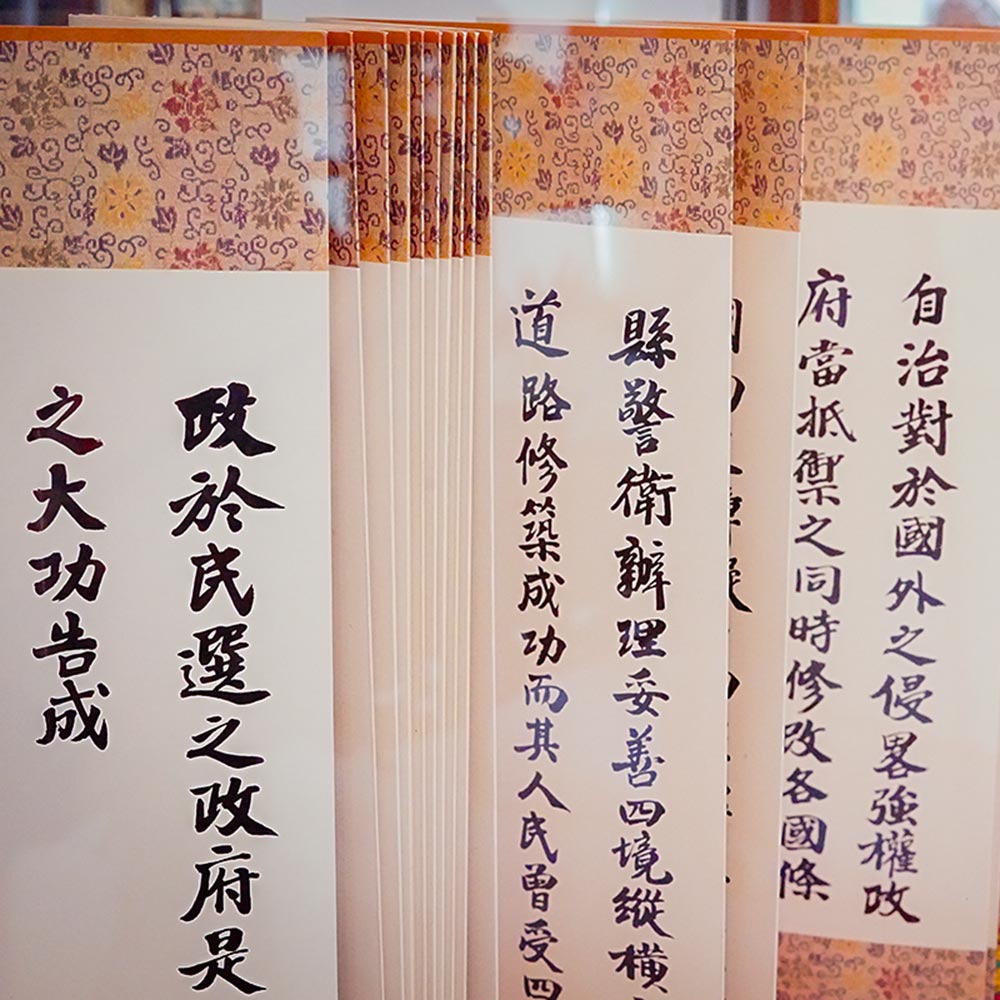 自治對於國外之侵畧強權政
府當抵禦之同時修改各國條
縣警衛辦理妥善四境縱橫
道路修築成功而其人民曾受四
政於民選之政府是
之大功告成